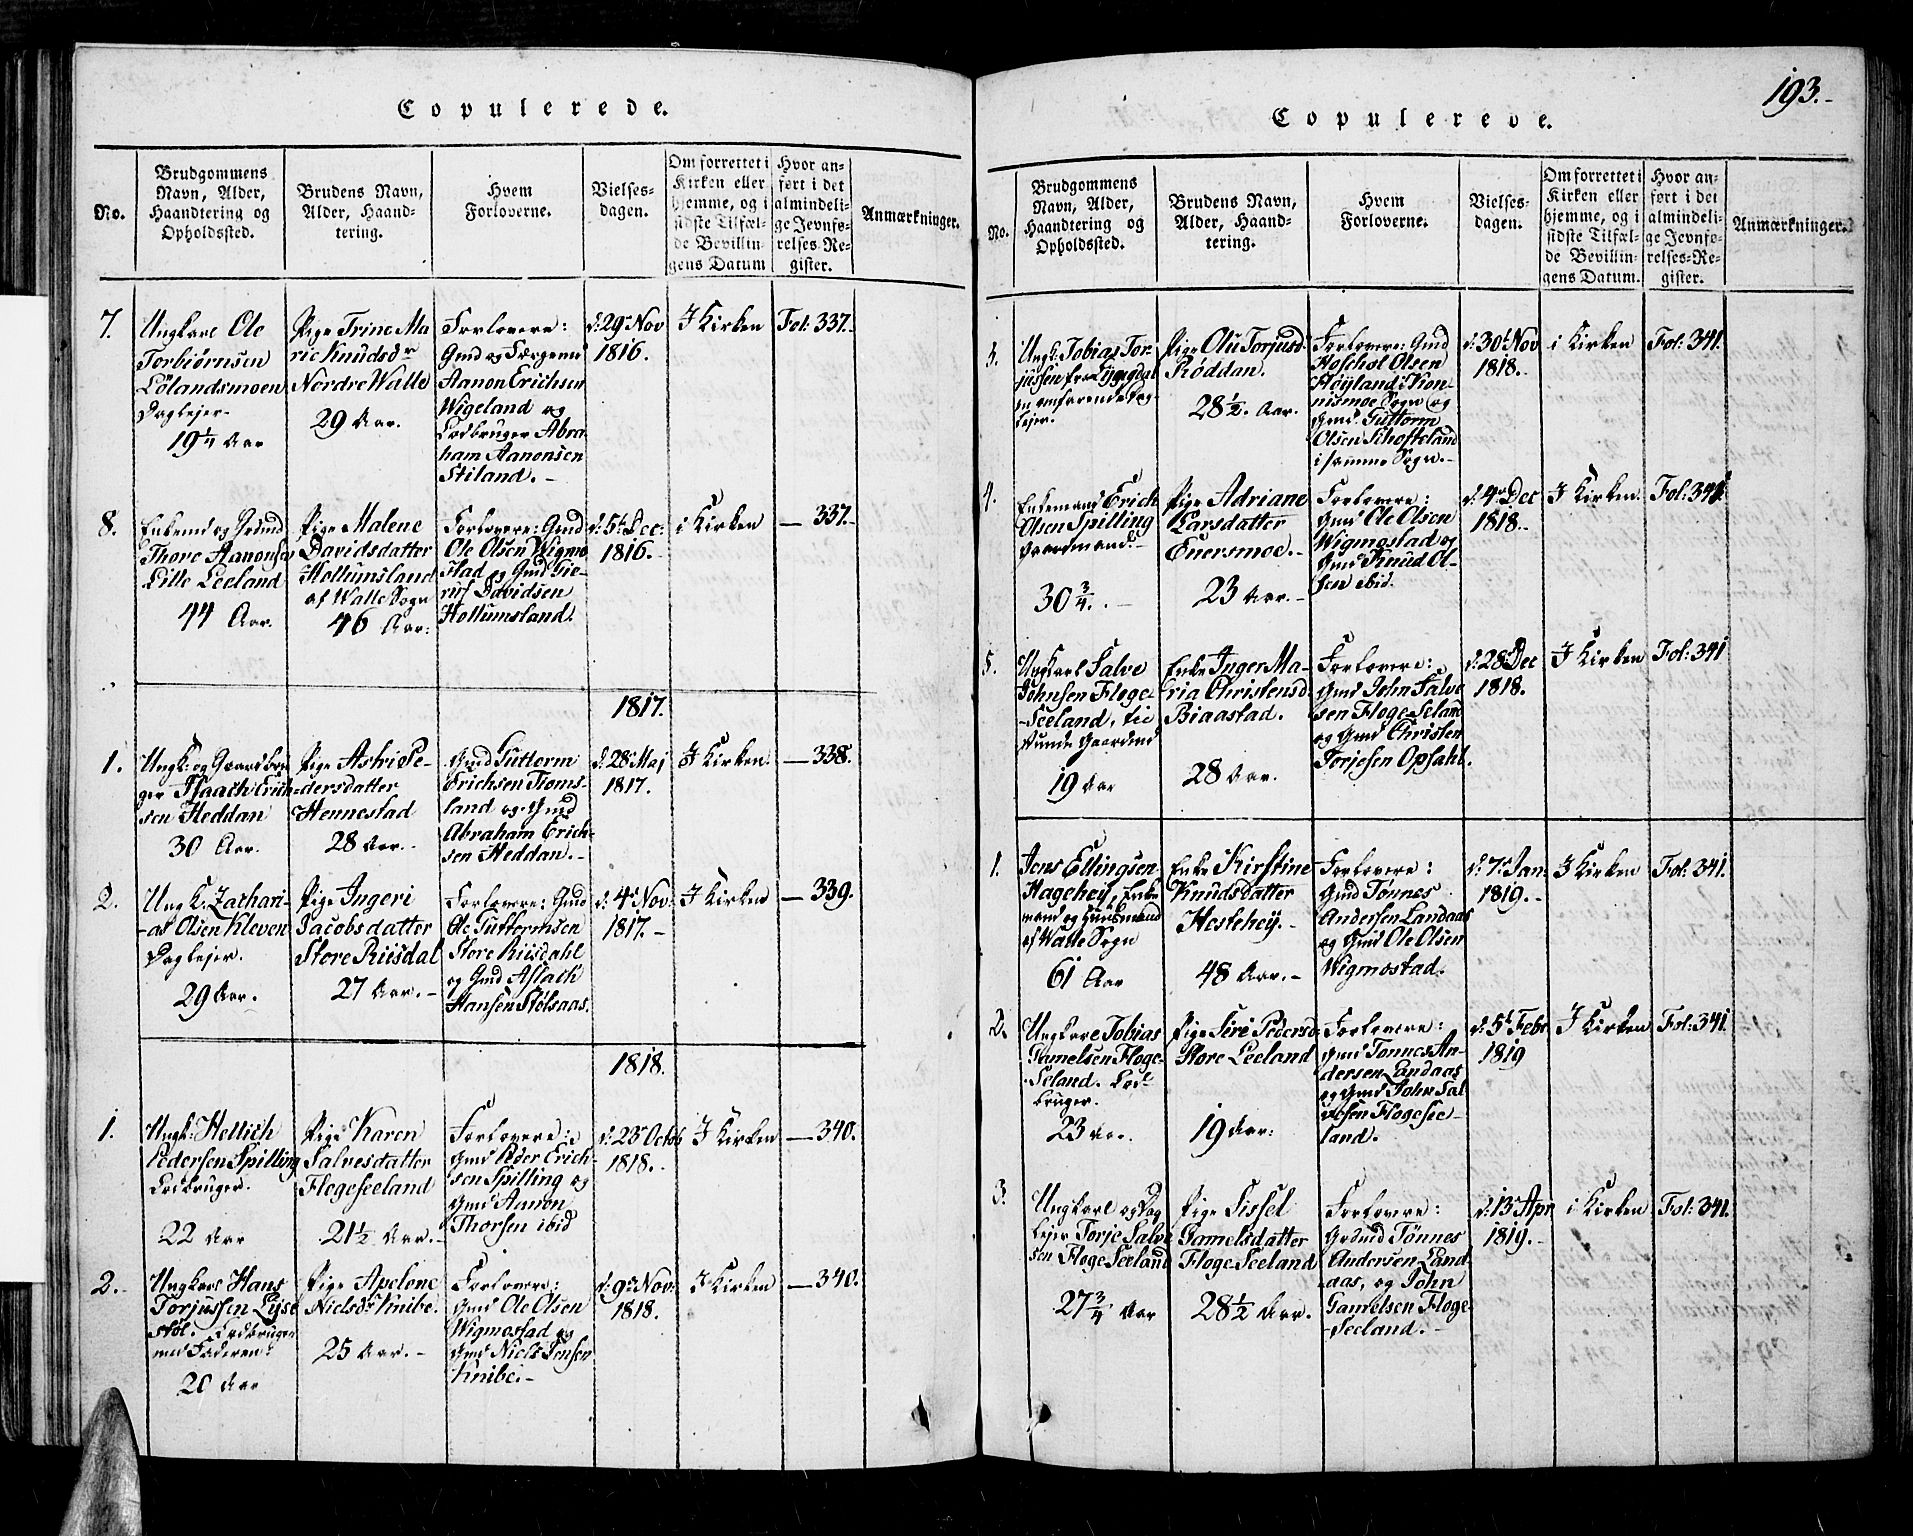 Copulerede.
No.
Brudgommens
Navn, Alder,
Haandtering og
Opholdssted.
Brudens Navn,
Alder, Haand-
tering.
Hvem
Forloverne.
Vielses-
dagen.
Om forrettet i
Kirken eller
hjemme, og i
sidste Tilfæl-
de Bevillin-
gens Datum
Hvor an-
ført i det
almindeli-
ge Jevnfø-
relses-Re-
gister.
Anmærkninger.
7.
Ungkarl Ole
Torbiørnsen
Lølandsmoen
Daglejer.
19 1/4 Aar
Pige Trine Ma
rie Knudsdr
Nordre Walle
29 Aar.
Forlovere:
Gmd og Færgemd
Aanon Erichsen
Wigeland og
Lodbruger Abra
ham Aanonsen
Stiland.-
d: 29 Nov
1816.
I Kirken
Fol: 337.-
8.
Enkemd og Grund
Thore Aanonsen
Lille Leeland
44 Aar.
Pige Malene
Davidsdatter
Hollumsland
af Walle Sogn
46 Aar:
Forlovere: Gmd
Ole Olsen Wigmo
stad og Gmd Tie
ruf Davidsen
Hollumsland.
d: 5t Dec:
1816.-
i Kirken
— 337.-
1817.
1.
Ungk: og Gaardbru
ger Isaach Erich
sen Heddan
30 Aar.
Pige Astri Pe-
dersdatter
Hennestad
28 Aar.-
Gmd Guttorm
Erichsen Tioms-
land og Gmd
Abraham Erich-
sen Heddan.-
d: 28 Maj
1817.
I Kirken.
— 338.
2.
Ungk. Zachari-
as Olsen Kleven
Daglejer.
29 Aar.
Pige Ingeri
Jacobsdatter
Store Riisdal
27 Aar.-
Forlovere: Gmd
Ole Guttormsen
Store Riisdahl
og Gmd Aslach
Hansen Stølsaas.
d: 4 Nov:
1817.-
I Kirken
— 339.
1818.
1.
Ungk: Hellich
Pedersen Spilling
Lodbruger.
22 Aar
Pige Karen
Salvesdatter
Flogeseeland
21 1/2 Aar.-
Forlovere:
Gmd Peder Erich-
sen Spilling og
Gmd Aanon
Thorsen ibid
d: 23 Octob
1818.-
I Kirken
— 340.
2.
Ungkarl Hans
Torjussen Lyse
støl. Lodbruger
med Faderen.
20 Aar
Pige Apelone
Nielsdr Knibe.
25 Aar.-
Forlovere:
Gmd Ole Olsen
Wigmostad og
Gmd Niels Jensen
Knibe.-
d: 9 Nov:
1818.
I Kirken
— 340.
193.-
Copulerede.
No.
Brudgommens
Navn, Alder,
Haandtering og
Opholdssted.
Brudens Navn,
Alder, Haand-
tering.
Hvem
Forloverne.
Vielses-
dagen.
Om forrettet i
Kirken eller
hjemme, og i
sidste Tilfæl-
de Bevillin-
gens Datum.
Hvor an-
ført i det
almindeli-
ge Jevnfø-
relses-Re-
gister.
Anmærkninger.
3.
Ungk: Tobias Tor-
jussen fra Lyngdal
en omfarende Dag-
lejer.
Pige Olu Torjusd.
Røddan.
28 1/2. Aar.
Forlovere: Gmd
Hofchol Olsen
Høyland i Kon-
nismoe Sogn og
Gmd. Guttorm
Olsen Schofteland
i samme Sogn.-
d: 30t Nov
1818.-
i Kirken
Fol: 341.
4.
Enkemand Erich
Olsen Spilling
Gaardmand.-
30 3/4.-
Pige Adriane
Larsdatter
Euersmoe.-
23 Aar.-
Forlovere:
Gmd Ole Olsen
Wigmostad og
Gmd Knud Ol-
sen ibid.
d: 4 Dec
1818.-
I Kirken.
Fol: 341.
5.
Ungkarl Salve
Johnsen Floge-
-Seeland, til
Aar
19 Aar
Enke Inger Ma-
ria Christensd.
Biaastad.
28 Aar.
Forlovere:
Gmd John Salve
sen Floge Seland
og Gmd Christen
Torjesen Opsahl.
d: 28 Dec
1818.
I Kirken
Fol: 341
1.
Jens Ellingsen
Hagehey, Enke
mand og Huusmand
af Walle Sogn
61 Aar
Enke Kirstine
Knudsdatter
Hestehey.-
48 Aar.-
Forlovere:
Gmd Tønnes
Andersen Landaas
og Gmd Ole Olsen
Wigmostad.
d: 7 Jan:
1819.-
I Kirken
Fol: 341.
2.
Ungkarl Tobias
Gamelsen Floge-
-Seland. Lod-
bruger.
23 Aar.
Pige Siri Pedersd:
Store Leeland
19 Aar:
Forlovere:
Gmd Tønnes An-
dersen Landaas
og Gmd John Sal
vesen Flogesee-
land.
d: 5t Febr
1819
I Kirken
Fol: 341.
3.
Ungkarl og Dag
lejer Torje Salve
sen Floge Seeland
27 3/4 Aar
Pige Sissel
Gamelsdatter
Floge Seeland
28 1/2 Aar.
Forlovere:
Grdmd Tønnes
Andersen Land
aas, og John
Gamelsen Floge-
-Seeland.-
d: 13 Apr
1819.-
i Kirken
Fol: 341.